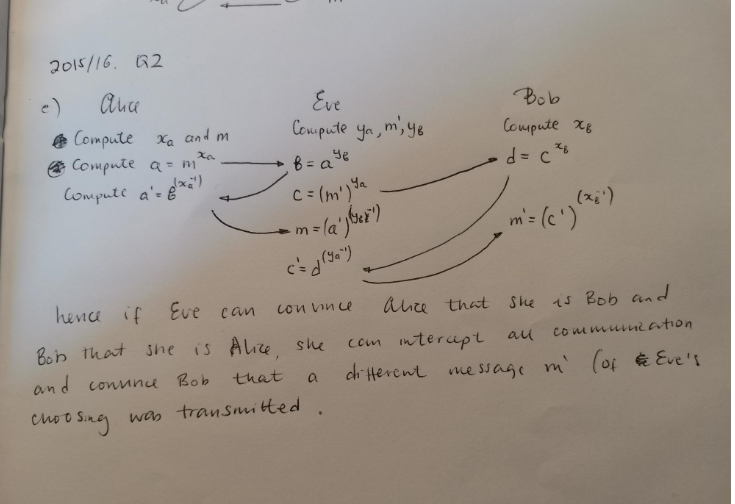 2015/16. Q2
e) Alice Eve Bob
Compute xₐ and m Compute yₐ, m', y_b Compute x_b
Compute a = m^xₐ b = a^y_b d = c^x_b
Compute a' = b^(xₐ⁻¹) c = (m')^yₐ
m = (a')^(y_b⁻¹) m' = (c')^(x_b⁻¹)
c' = d^(yₐ⁻¹)
hence if Eve can convince Alice that she is Bob and
Bob that she is Alice, she can intercept all communication
and convince Bob that a different message m' (of Eve's
choosing was transmitted.